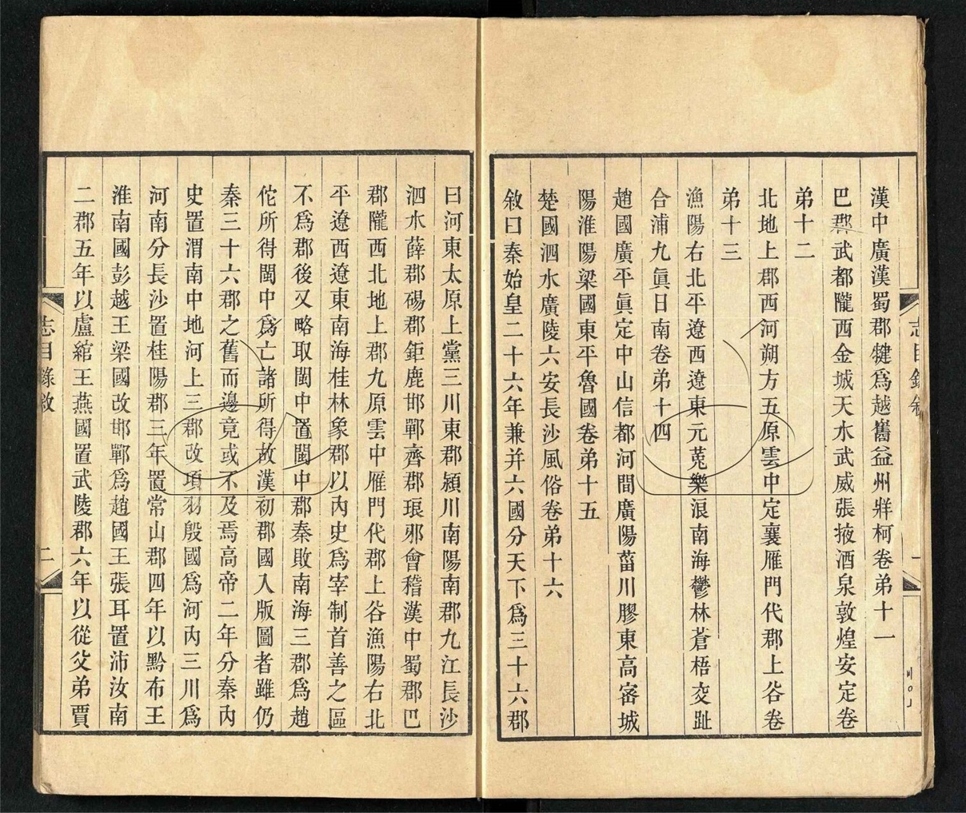 漢中廣漢蜀郡犍爲越巂益州牂柯卷弟十一
巴郡武都隴西金城天水武威張掖酒泉敦煌安定卷
弟十二
北地上郡西河朔方五原雲中定襄雁門代郡上谷卷
弟十三
漁陽右北平遼西遼東元菟樂浪南海鬱林蒼梧交趾
合浦九眞日南卷弟十四
趙國廣平眞定中山信都河間廣陽菑川膠東高密城
陽淮陽梁國東平魯國卷弟十五
楚國泗水廣陵六安長沙風俗卷弟十六
敘曰秦始皇二十六年兼并六國分天下爲三十六郡
曰河東太原上黨三川東郡潁川南陽南郡九江長沙
泗水薛郡碭郡鉅鹿邯鄲齊郡琅邪會稽漢中蜀郡巴
郡隴西北地上郡九原雲中雁門代郡上谷漁陽右北
平遼西遼東南海桂林象郡以內史爲宰制首善之區
不爲郡後又略取閩中置閩中郡秦敗南海三郡爲趙
佗所得閩中爲亡諸所得故漢初郡國入版圖者雖仍
秦三十六郡之舊而邊竟或不及焉高帝二年分秦內
史置渭南中地河上三郡改項羽殷國爲河內三川爲
河南分長沙置桂陽郡三年置常山郡四年以黔布王
淮南國彭越王梁國改邯鄲爲趙國王張耳置沛汝南
二郡五年以盧綰王燕國置武陵郡六年以從父弟賈
志目錄敘
二